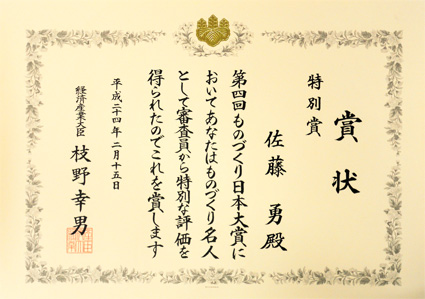 賞状
特別賞
佐藤勇殿
第四回ものづくり日本大賞に
おいてあなたはものづくり名人
として審査員から特別な評価を
得られたのでこれを賞します
平成二十四年二月十五日
経済産業大臣 枝野幸男